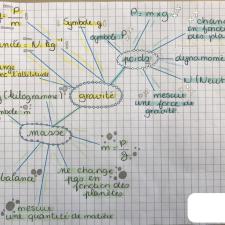 P
m
Symbole g
symbole P
P = m x g
chan
en fonction
des pla
unité = N / kg⁻¹
ange
vec l'altitude
poids
dynamomè
gravité
N (Newt
(kilogramme)
mesure
une force de
gravité
masse
m = P
g
balance
ne change
pas en
fonction des
planètes
mesure
une quantité de matière